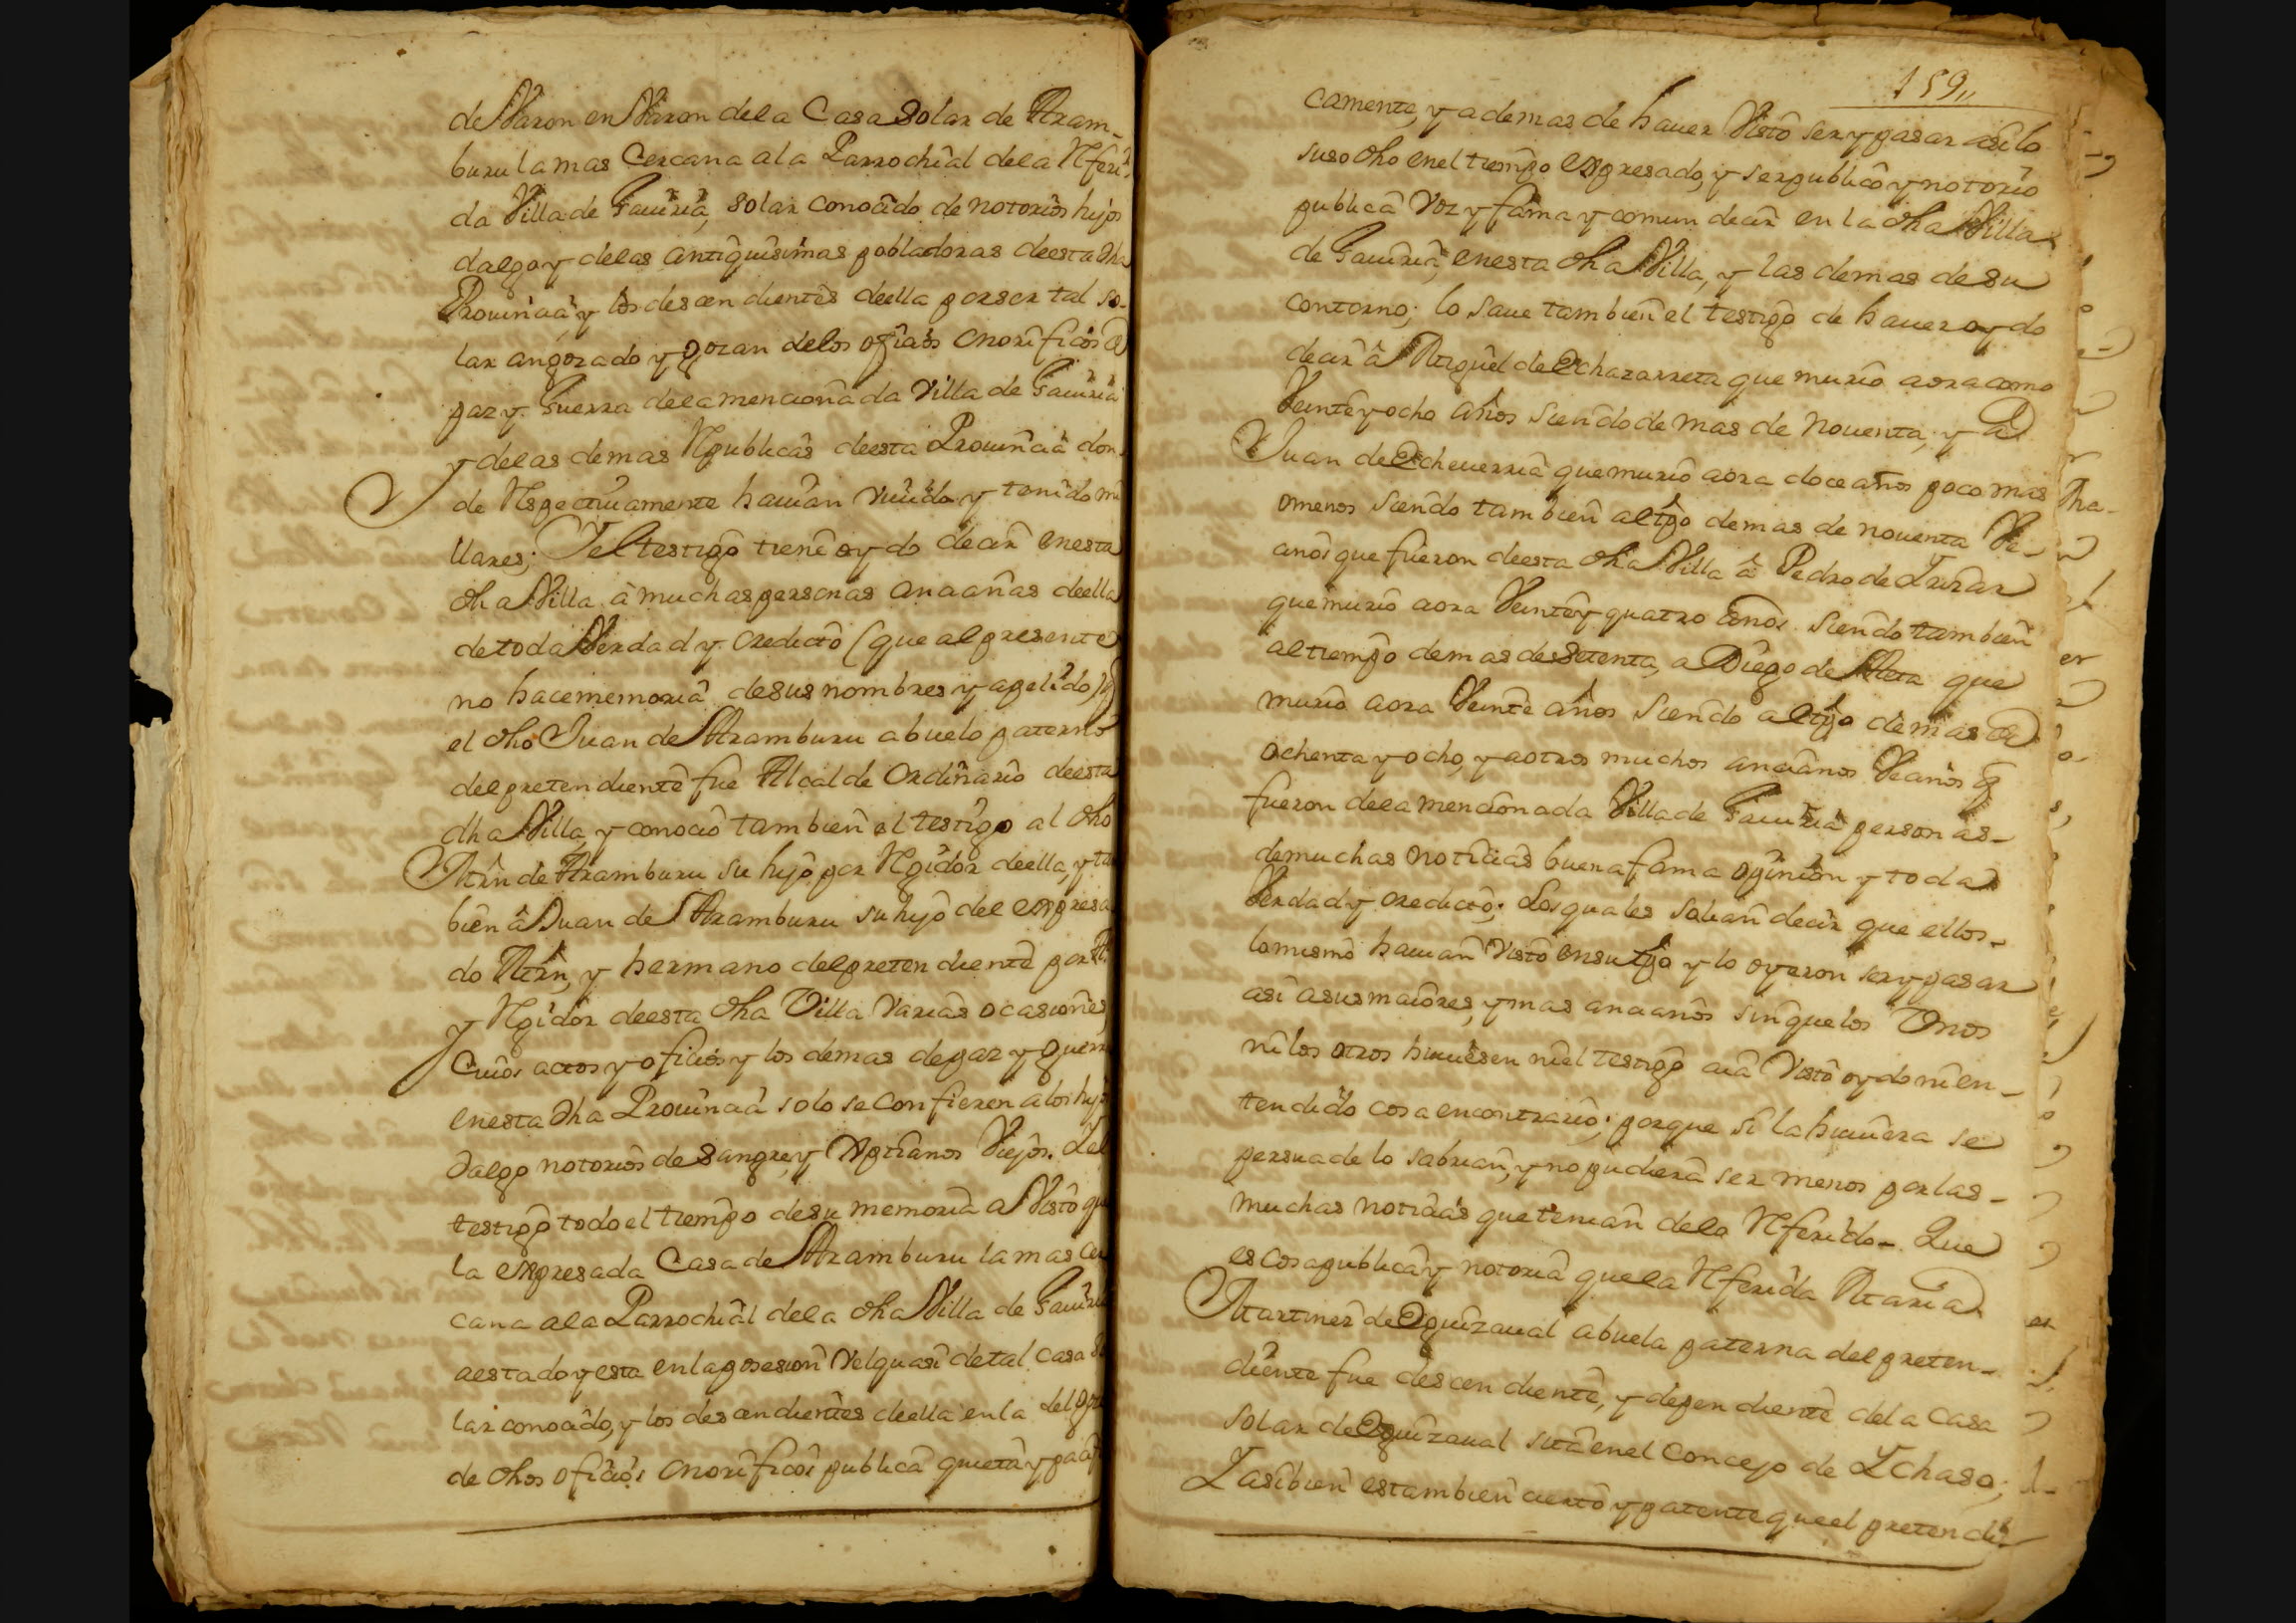 de Varon en Varon dela Casa Solar de Aram-
buru la mas Cercana ala Parrochial dela Referi-
da Villa de Gauiria, solar conocido de notorios hijos
dalgo y delas antiquisimas pobladoras deesta dha
Prouincia y los descendientes deella por ser tal so-
lar an gozado y gozan delos oficios onorificos de
paz y Guerra dela mencionada Villa de Gauiria
y delas demas Republicas deesta Prouincia don-
de Respectiuamente hauian viuido y tenido mi
llares; Y el testigo tiene oydo decir en esta
dha Villa à muchas personas ancianas deella
de toda Verdad y credicto (que al presente
no hace memoria de sus nombres y apelido) q
el dho Juan de Aramburu abuelo paterno
del pretendiente fue Alcalde Ordinario deesta
dha Villa, y conocio tambien el testigo al dho
Mrn de Aramburu su hijo por Regidor deella, y ta
bien â Juan de Aramburu su hijo del expresa
do Mrn, y hermano del pretendiente por
y Regidor deesta dha Villa Varias ocasiones,
Cuios actos y oficios y los demas de paz y guerra
en esta dha Prouincia solo se confieren a los hijos
dalgo notorios de sangre, y Xptianos Viejos. Y el
testigo todo el tiempo de su memoria a Visto que
la expresada Casa de Aramburu la mas cer
cana ala Parrochial dela dha Villa de Gauiria
a estado y esta en la posesion vel quasi de tal casa so
lar conocido, y los descendientes deella en la del goze
de dhos oficios onorificos publica quieta y pacifi
159,,
camente, y ademas de hauer Visto ser y pasar asi lo
suso dho en el tiempo expresado, y ser publico y notorio
publica voz y fama y comun decir en la dha Villa
de Gauiria, en esta dha Villa, y las demas de su
contorno; lo saue tambien el testigo de hauer oydo
decir â Miguel de Echazarreta que murio aora como
Veinte y ocho años siendo de mas de nouenta, y â
Juan de Echeuerria que murio aora doce años poco mas
o menos siendo tambien al tpo de mas de nouenta Ve-
cinos que fueron deesta dha Villa â Pedro de Irizar
que murio aora Veinte y quatro años. siendo tambien
al tiempo de mas de setenta, a Diego de Aleta que
murio aora Veinte años siendo al tpo de mas de
ochenta y ocho, y a otros muchos ancianos Vecinos q
fueron dela mencionada Villa de Gauiria personas-
de muchas noticias buena fama opinion y toda
Verdad y credicto; Los quales solian decir que ellos-
lo mismo hauian visto en su tpo y lo oyeron ser y pasar
asi a sus maiores, y mas ancianos sin que los Unos
ni los otros huuiesen ni el testigo aia Visto oydo ni en-
tendido cosa en contrario; porque si la huuiera se
persuade lo sabrian, y no pudiera ser menos por las-
muchas noticias que tenian delo Referido- Que
es cosa publica y notoria que la Referida Maria
Martinez de Oquizaual abuela paterna del preten-
diente fue descendiente, y dependiente dela Casa
solar de Oquizaual sita en el Concejo de Ychaso;
Y asi bien es tambien cierto y patente que el pretendi-